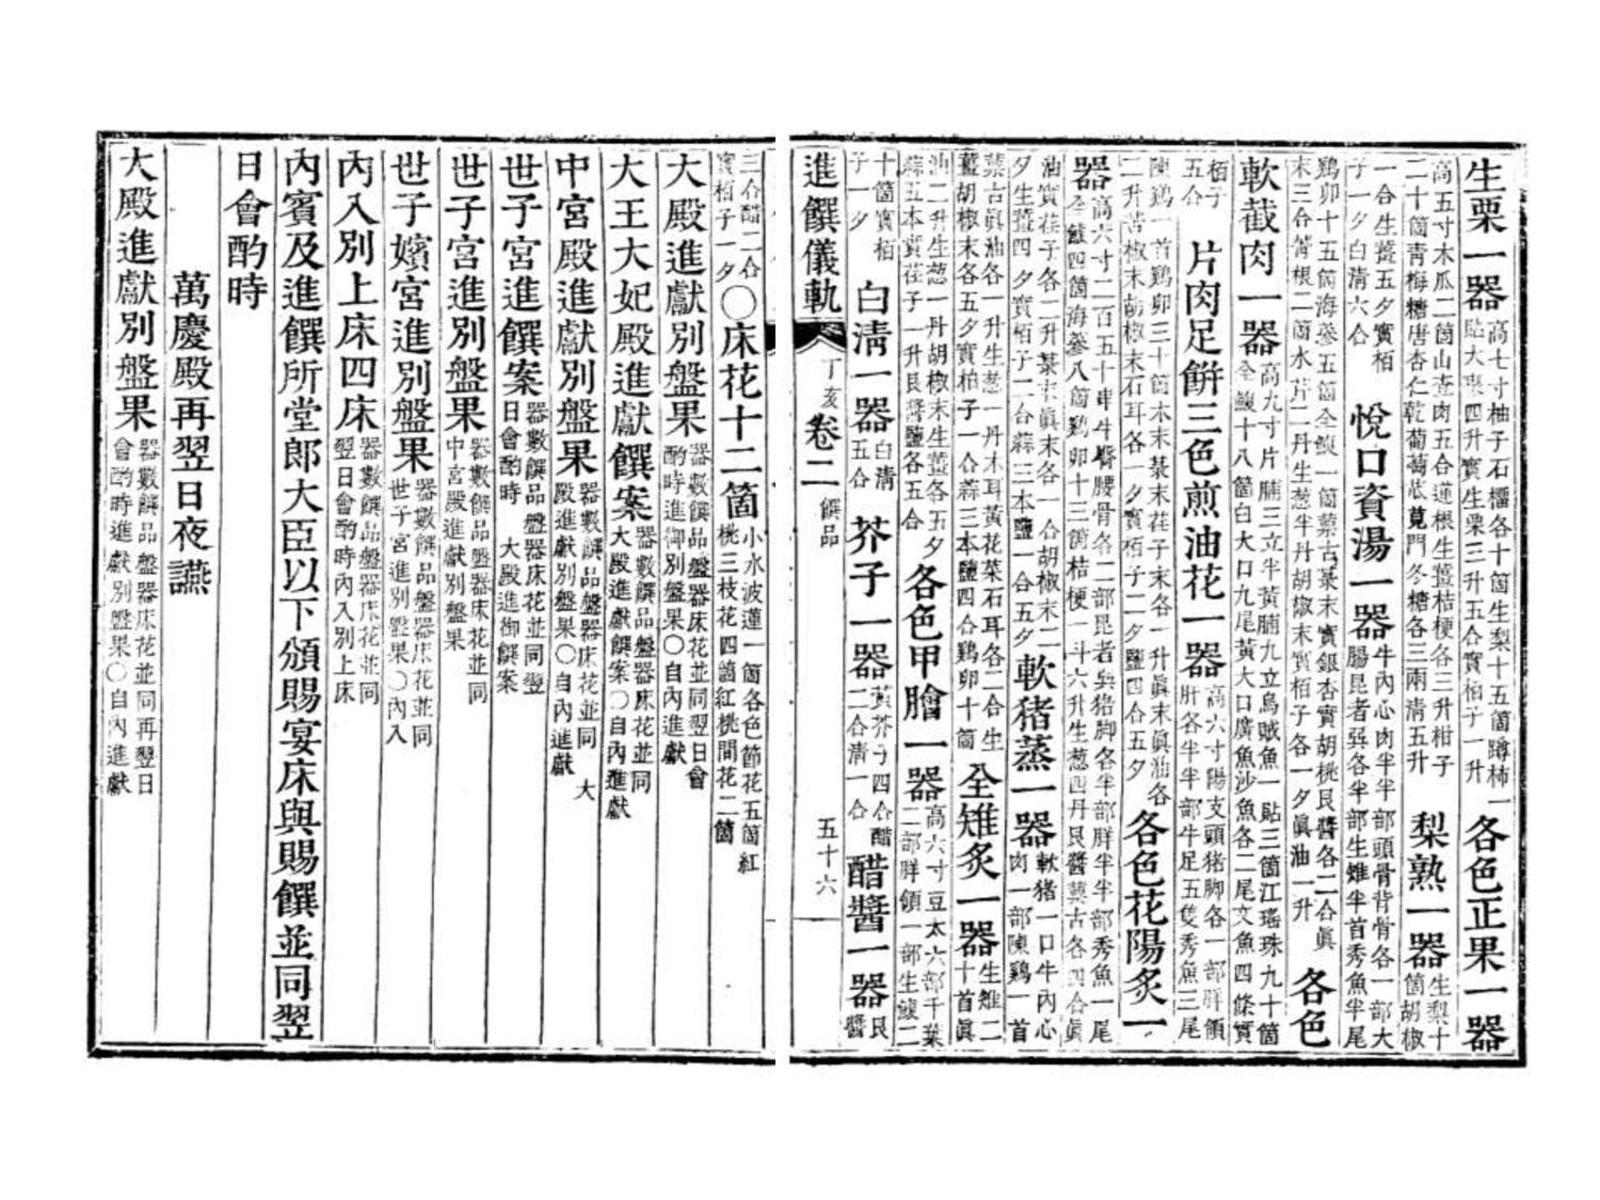 生栗一器高七寸柚子石榴各十箇生梨十五箇蹲柿一貼大棗四升實生栗三升五合實柏子一升各色正果一器
高五寸木瓜二箇山査肉五合蓮根生薑桔梗各三升柑子二十箇靑梅糖唐杏仁乾葡萄苽莧門冬糖各三兩淸五升梨熟一器生梨十箇胡椒
一合生薑五夕實栢子一夕白淸六合悅口資湯一器牛內心肉半半部頭骨背骨各一部大腸昆者巽各半部生雉半首秀魚半尾
鷄卵十五箇海參五箇全鰒一箇蔈古菉末實銀杏實胡桃艮醬各二合眞末三合菁根二箇水芹二丹生葱半丹胡椒末實栢子各一夕眞油一升各色
軟截肉一器高九寸片脯三立半黃脯九立烏賊魚一貼三箇江瑤珠九十箇全鰒十八箇白大口九尾黃大口廣魚沙魚各二尾文魚四條實
栢子五合片肉足餠三色煎油花一器高六寸陽支頭猪脚各一部胖領肝各半半部牛足五隻秀魚三尾
陳鷄一首鷄卵三十箇木末菉末荏子末各一升眞末眞油各二升苦椒末胡椒末石耳各一夕實栢子二夕鹽四合五夕各色花陽炙一
器高六寸二百五十串牛臀腰骨各二部昆者巽猪脚各半部胖半半部秀魚一尾全鰒四箇海參八箇鷄卵十三箇桔梗一斗六升生葱四丹艮醬蔈古各四合眞
油實荏子各二升菉末眞末各一合胡椒末二夕生薑四夕實栢子二合蒜三本鹽一合五夕軟猪蒸一器軟猪一口牛內心肉一部陳鷄一首
蔈古眞油各一升生葱一丹木耳黃花菜石耳各二合生薑胡椒末各五夕實柏子一合蒜三本鹽四合鷄卵十箇全雉炙一器生雉二十首眞
油二升生葱一丹胡椒末生薑各五夕蒜五本實荏子一升艮醬鹽各五合各色甲膾一器高六寸豆太六部千葉二部胖領一部生鰒二
十箇實栢子一夕白淸一器白淸五合芥子一器黃芥子四合醋二合淸一合醋醬一器艮醬
進饌儀軌丁亥卷二饌品五十六
三合醋二合實栢子一夕〇床花十二箇小水波蓮一箇各色節花五箇紅桃三枝花四箇紅桃間花二箇
大殿進獻別盤果器數饌品盤器床花並同翌日會酌時進御別盤果〇自內進獻
大王大妃殿進獻饌案器數饌品盤器床花並同大殿進獻饌案〇自內進獻
中宮殿進獻別盤果器數饌品盤器床花並同大殿進獻別盤果〇自內進獻
世子宮進饌案器數饌品盤器床花並同翌日會酌時大殿進御饌案
世子宮進別盤果器數饌品盤器床花並同中宮殿進獻別盤果
世子嬪宮進別盤果器數饌品盤器床花並同世子宮進別盤果〇內入
內入別上床四床器數饌品盤器床花並同翌日會酌時內入別上床
內賓及進饌所堂郞大臣以下頒賜宴床與賜饌並同翌
日會酌時
萬慶殿再翌日夜讌
大殿進獻別盤果器數饌品盤器床花並同再翌日會酌時進獻別盤果〇自內進獻